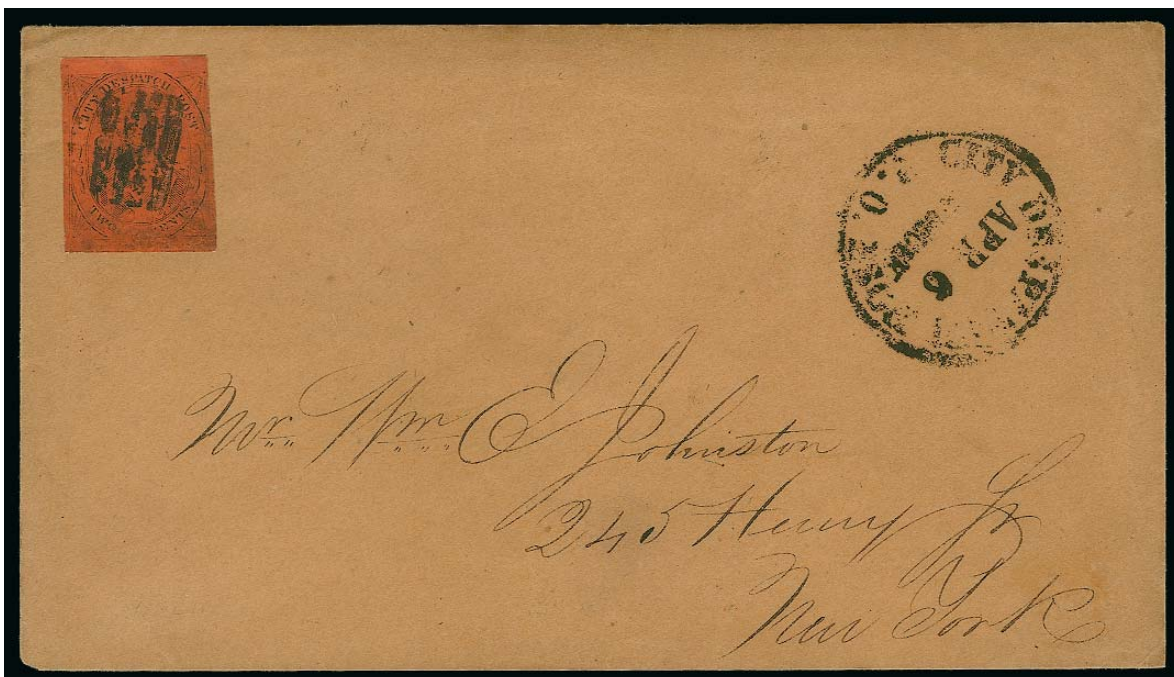 CITY DESPATCH POST
TWO CENTS
CITY DESPATCH POST
APR
6
Mr. Wm. E Johnston
245 Henry St
New York